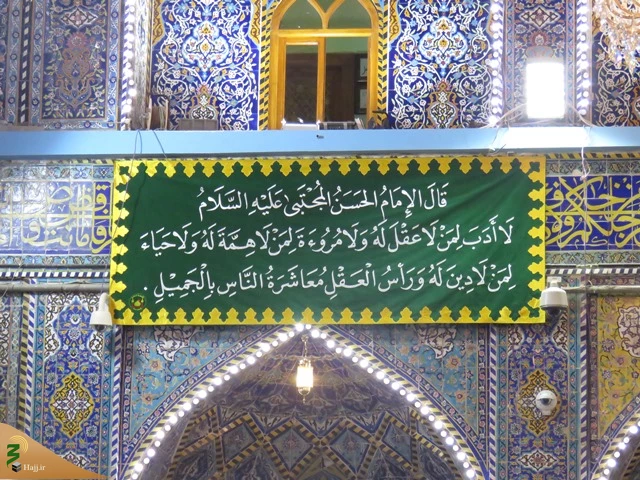 قَالَ الإِمَامُ الحَسَنُ المُجْتَبىٰ عَلَيْهِ السَّلَامُ
لَا أَدَبَ لِمَنْ لَا عَقْلَ لَهُ وَلَا مُرُوءَةَ لِمَنْ لَا هِمَّةَ لَهُ وَلَا حَيَاءَ
لِمَنْ لَا دِينَ لَهُ وَرَأْسُ الْعَقْلِ مُعَاشَرَةُ النَّاسِ بِالْجَمِيلِ .
Hajj.ir